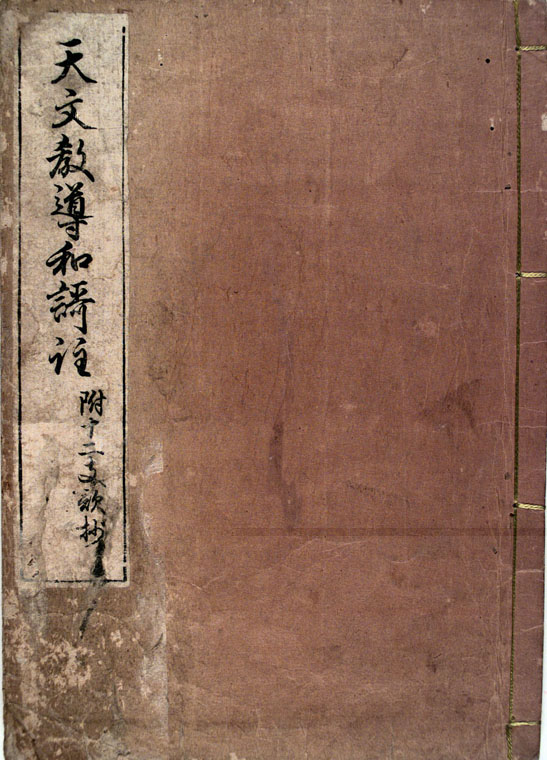 天文教導和謌註
附十二支歌抄